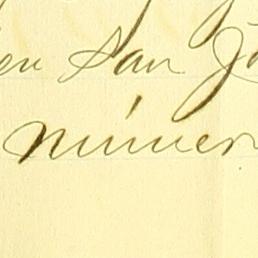 en San J
númer